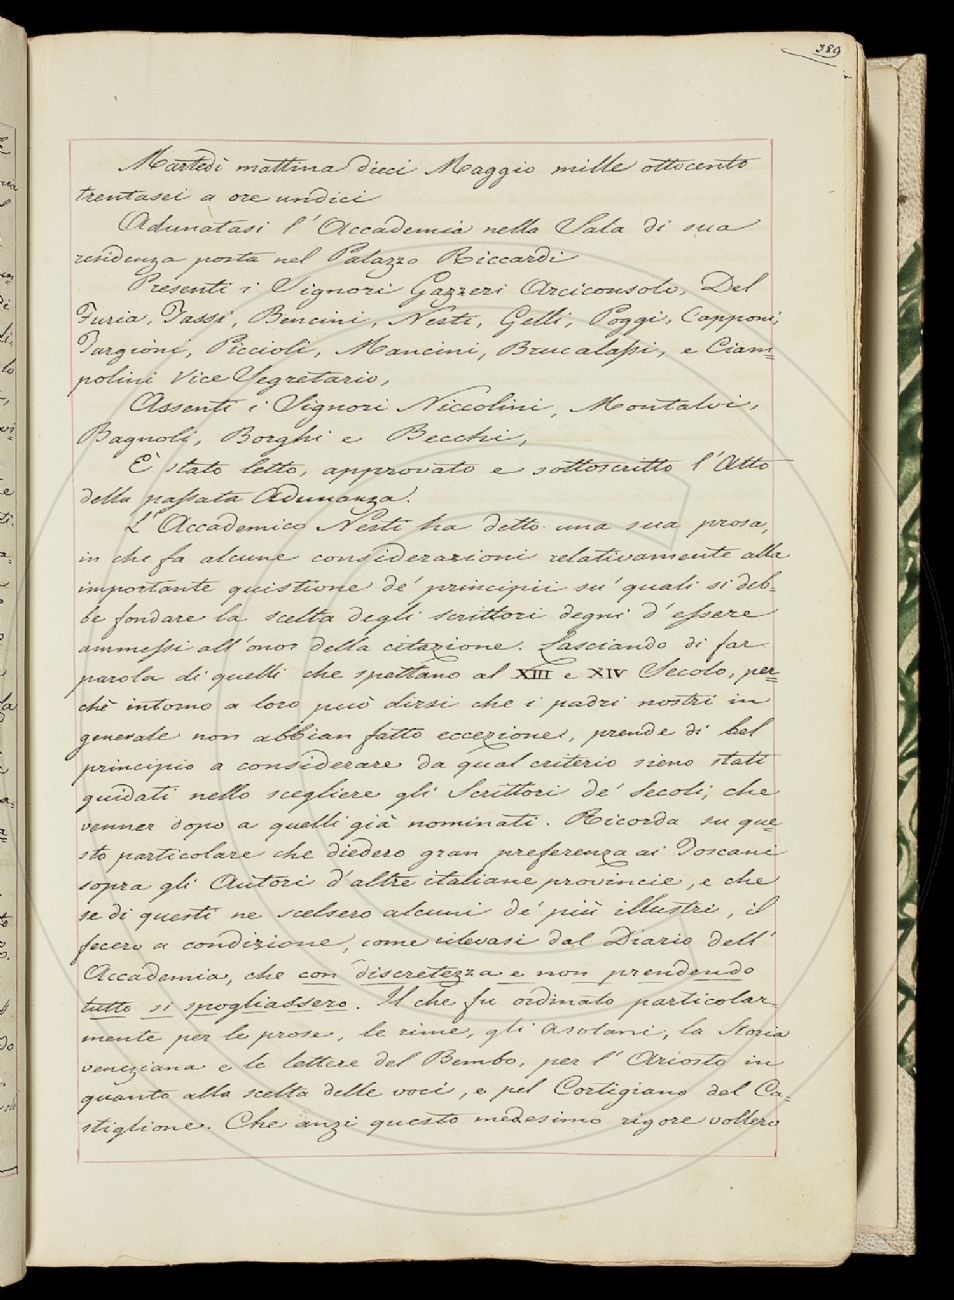 389
Martedì mattina dieci Maggio mille ottocento
trentasei a ore undici
Adunatasi l'Accademia nella Sala di sua
residenza posta nel Palazzo Riccardi
Presenti i Signori Gazzeri Arciconsolo, Del
Furia, Tassi, Bencini, Nesti, Gelli, Poggi, Capponi,
Targioni, Piccioli, Mancini, Brucalassi, e Ciam=
polini Vice Segretario,
Assenti i Signori Niccolini, Montalvi,
Bagnoli, Borghi e Becchi,
È stato letto, approvato e sottoscritto l'Atto
della passata Adunanza.
L'Accademico Nesti ha detto una sua prosa,
in che fa alcune considerazioni relativamente alla
importante quistione de' principii su' quali si deb-
be fondare la scelta degli scrittori degni d'essere
ammessi all'onor della citazione. Lasciando di far
parola di quelli che spettano al XIII e XIV Secolo, per=
chè intorno a loro può dirsi che i padri nostri in
generale non abbian fatto eccezione, prende di bel
principio a considerare da qual criterio sieno stati
guidati nello scegliere gli Scrittori de' Secoli, che
venner dopo a quelli già nominati. Ricorda su que=
sto particolare che diedero gran preferenza ai Toscani
sopra gli Autori d'altre italiane provincie, e che
se di questi ne scelsero alcuni de' più illustri, il
fecero a condizione, come rilevasi dal Diario dell'
Accademia, che con discretezza e non prendendo
tutto si spogliassero. Il che fu ordinato particolar-
mente per le prose, le rime, gli Asolani, la Storia
veneziana e le lettere del Bembo, per l'Ariosto in
quanto alla scelta delle voci, e pel Cortigiano del Ca-
stiglione. Che anzi questo medesimo rigore vollero